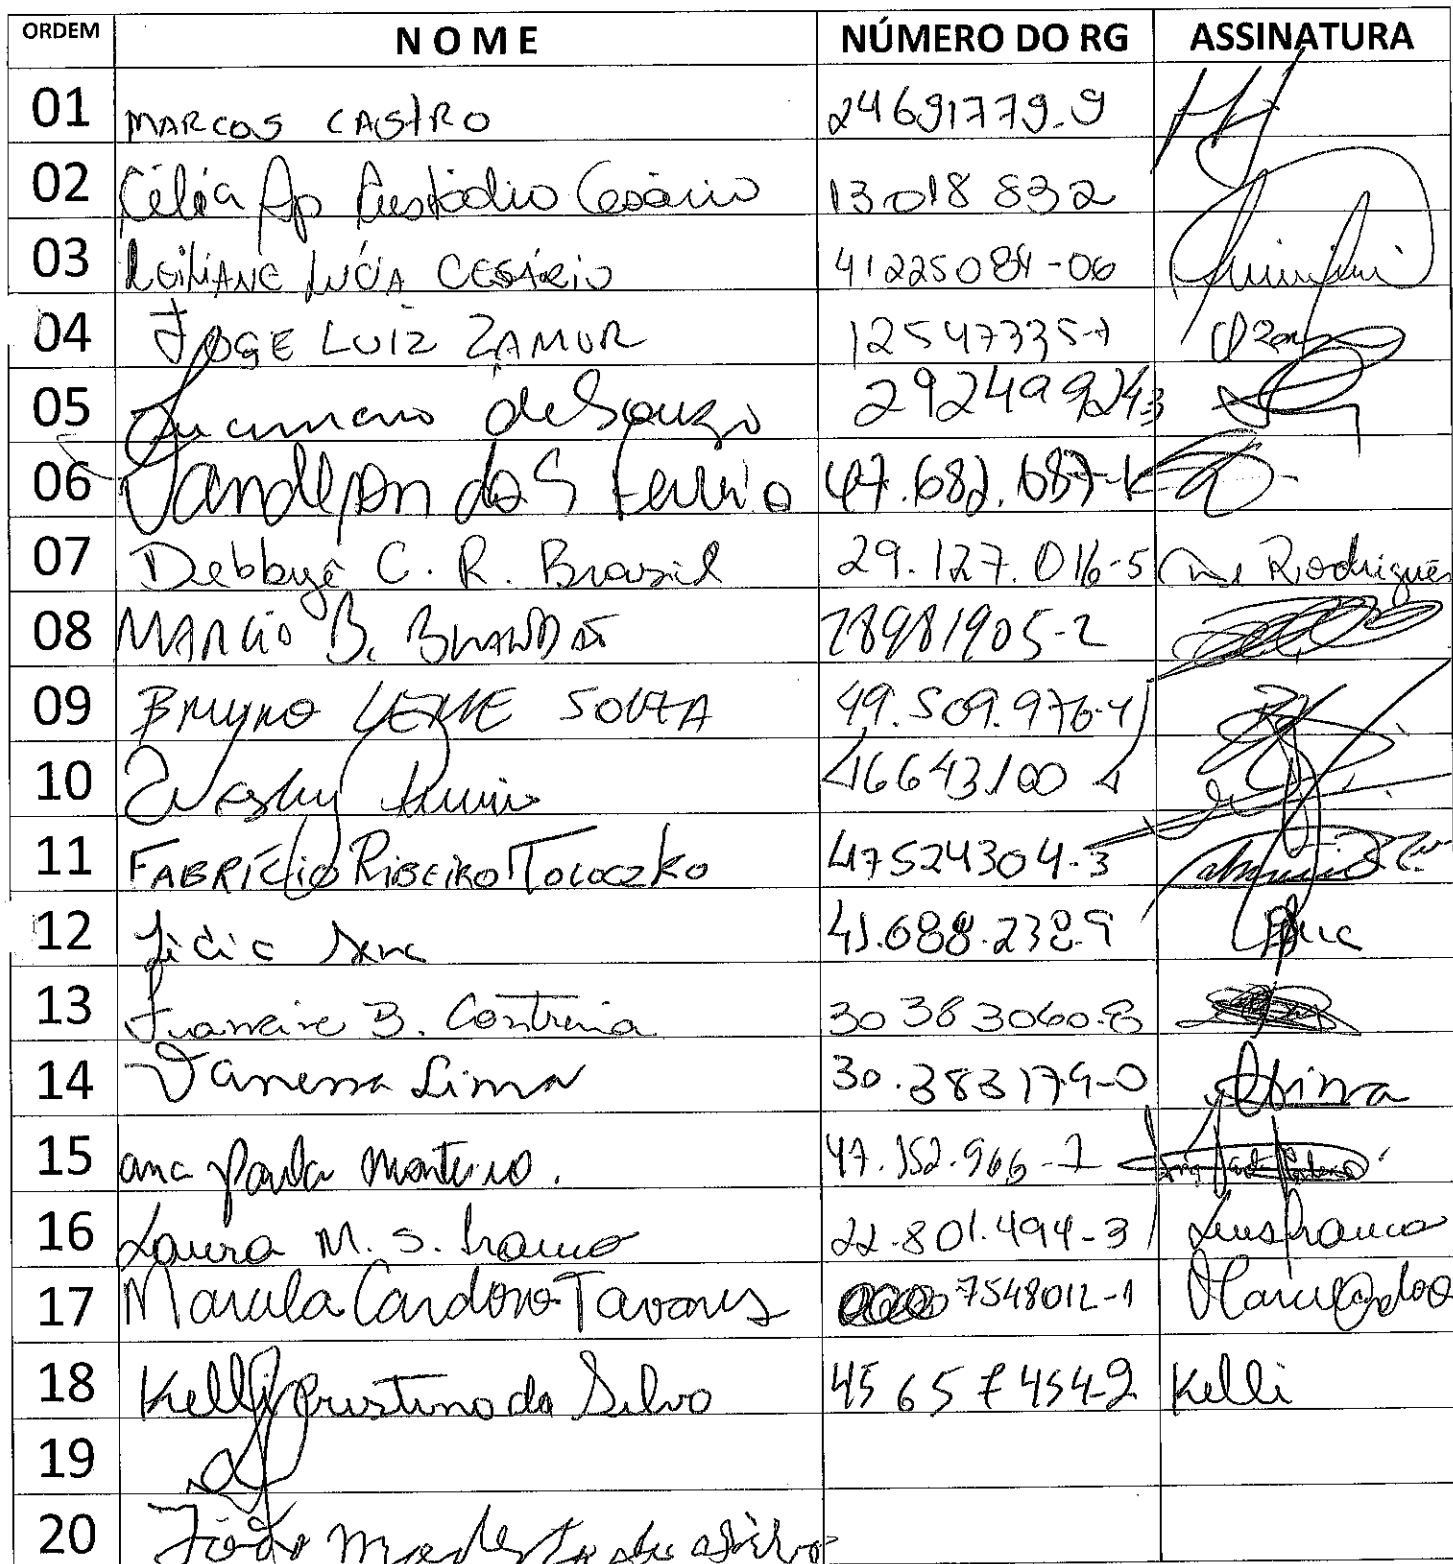 ORDEM NOME NÚMERO DO RG ASSINATURA
01 MARCOS CASTRO 24691779-9
02 Célia Ap Custódio Cesário 13018 832
03 LEILIANE LÚCIA CESÁRIO 41225084-06
04 JOSE LUIZ ZAMUR 12547335-7
05 de Souza 292499243
06 Vanderson dos S Ferreira 47.682.687-
07 C. R. Brasil 29.127.016-5 Rodrigues
08 MARCIO B. BRANDÃO 28981905-2
09 BRUNO LEME SOUZA 49.509.976-4
10 Wesley 46643100
11 FABRÍCIO RIBEIRO 47524304-3
12 41.688.238-9
13 B. 30 383060-8
14 Vanessa Lima 30.383179-0
15 ana Paula Monteiro. 47.152.966-
16 Laura M. S. Franco 22.801.494-3
17 Marcela Cardoso Tavares 7548012-1
18 Kelli Cristina da Silva 45 65 7 454-9 Kelli
19
20 João Modesto da Silva